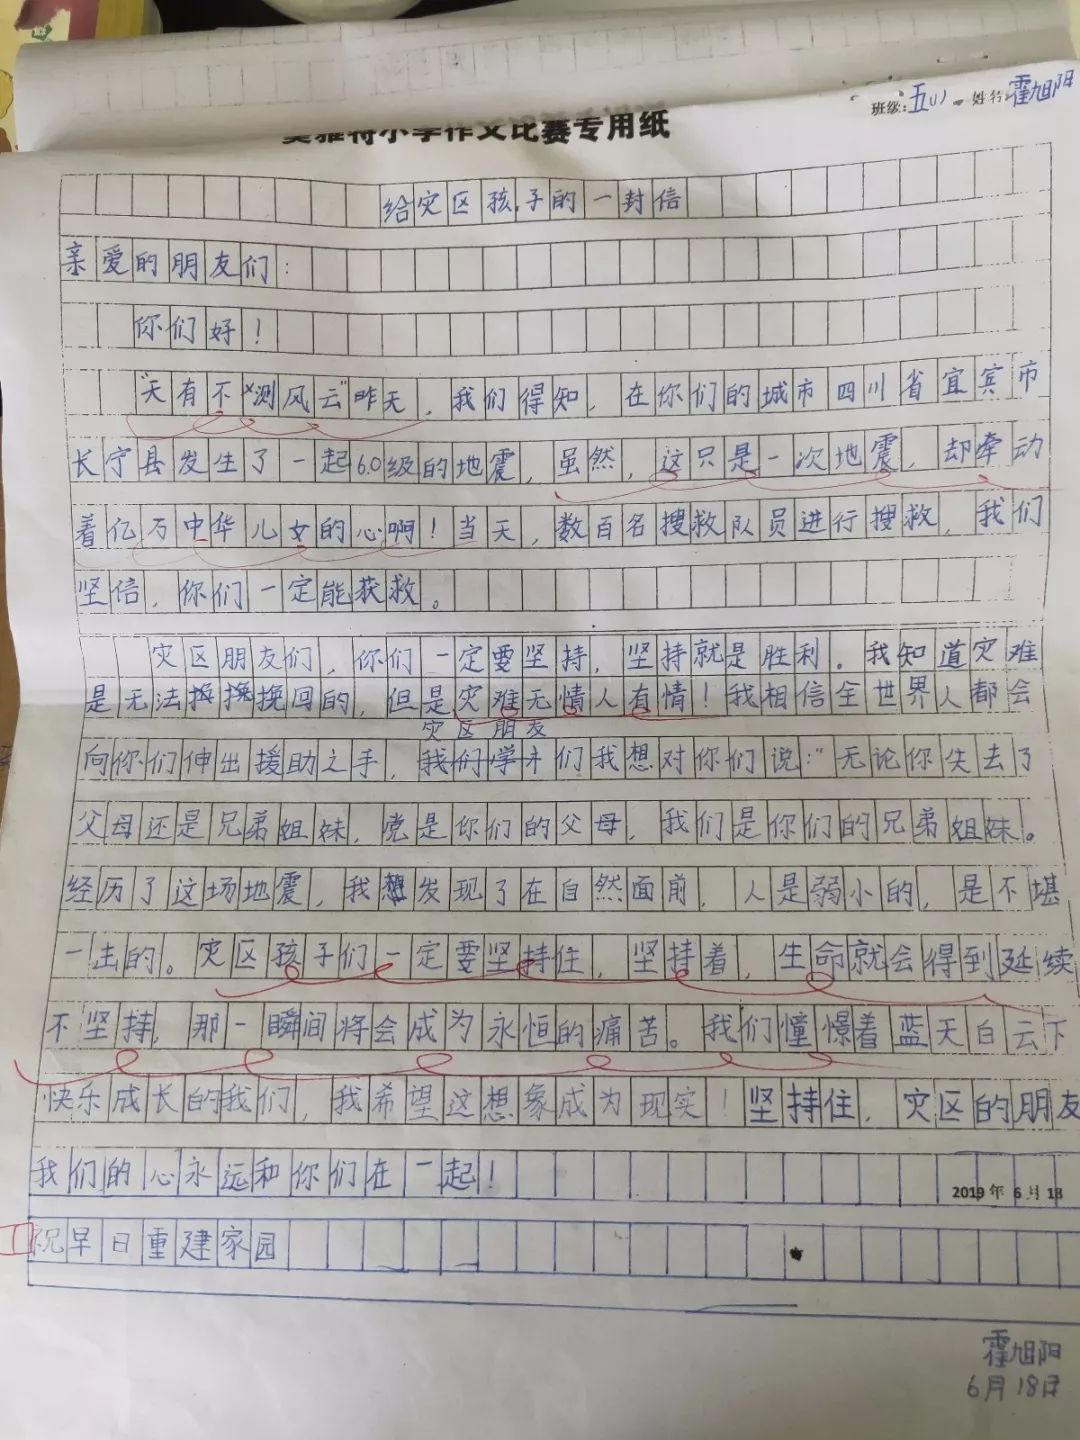 班级:五(1) 姓名:霍旭阳
小学作文比赛专用纸
给灾区孩子的一封信
亲爱的朋友们:
你们好!
"天有不测风云"昨天,我们得知,在你们的城市四川省宜宾市
长宁县发生了一起6.0级的地震,虽然,这只是一次地震,却牵动
着亿万中华儿女的心啊!当天,数百名搜救队员进行搜救,我们
坚信,你们一定能获救。
灾区朋友们,你们一定要坚持,坚持就是胜利。我知道灾难
是无法挽回的,但是灾难无情人有情!我相信全世界人都会
灾区朋友
向你们伸出援助之手,我们学才们我想对你们说:"无论你失去了
父母还是兄弟姐妹,党是你们的父母,我们是你们的兄弟姐妹。
经历了这场地震,我发现了在自然面前,人是弱小的,是不堪
一击的。灾区孩子们一定要坚持住,坚持着,生命就会得到延续
不坚持,那一瞬间将会成为永恒的痛苦。我们憧憬着蓝天白云下
快乐成长的我们,我希望这想象成为现实!坚持住,灾区的朋友
我们的心永远和你们在一起!
2019年6月18
祝早日重建家园
霍旭阳
6月18日